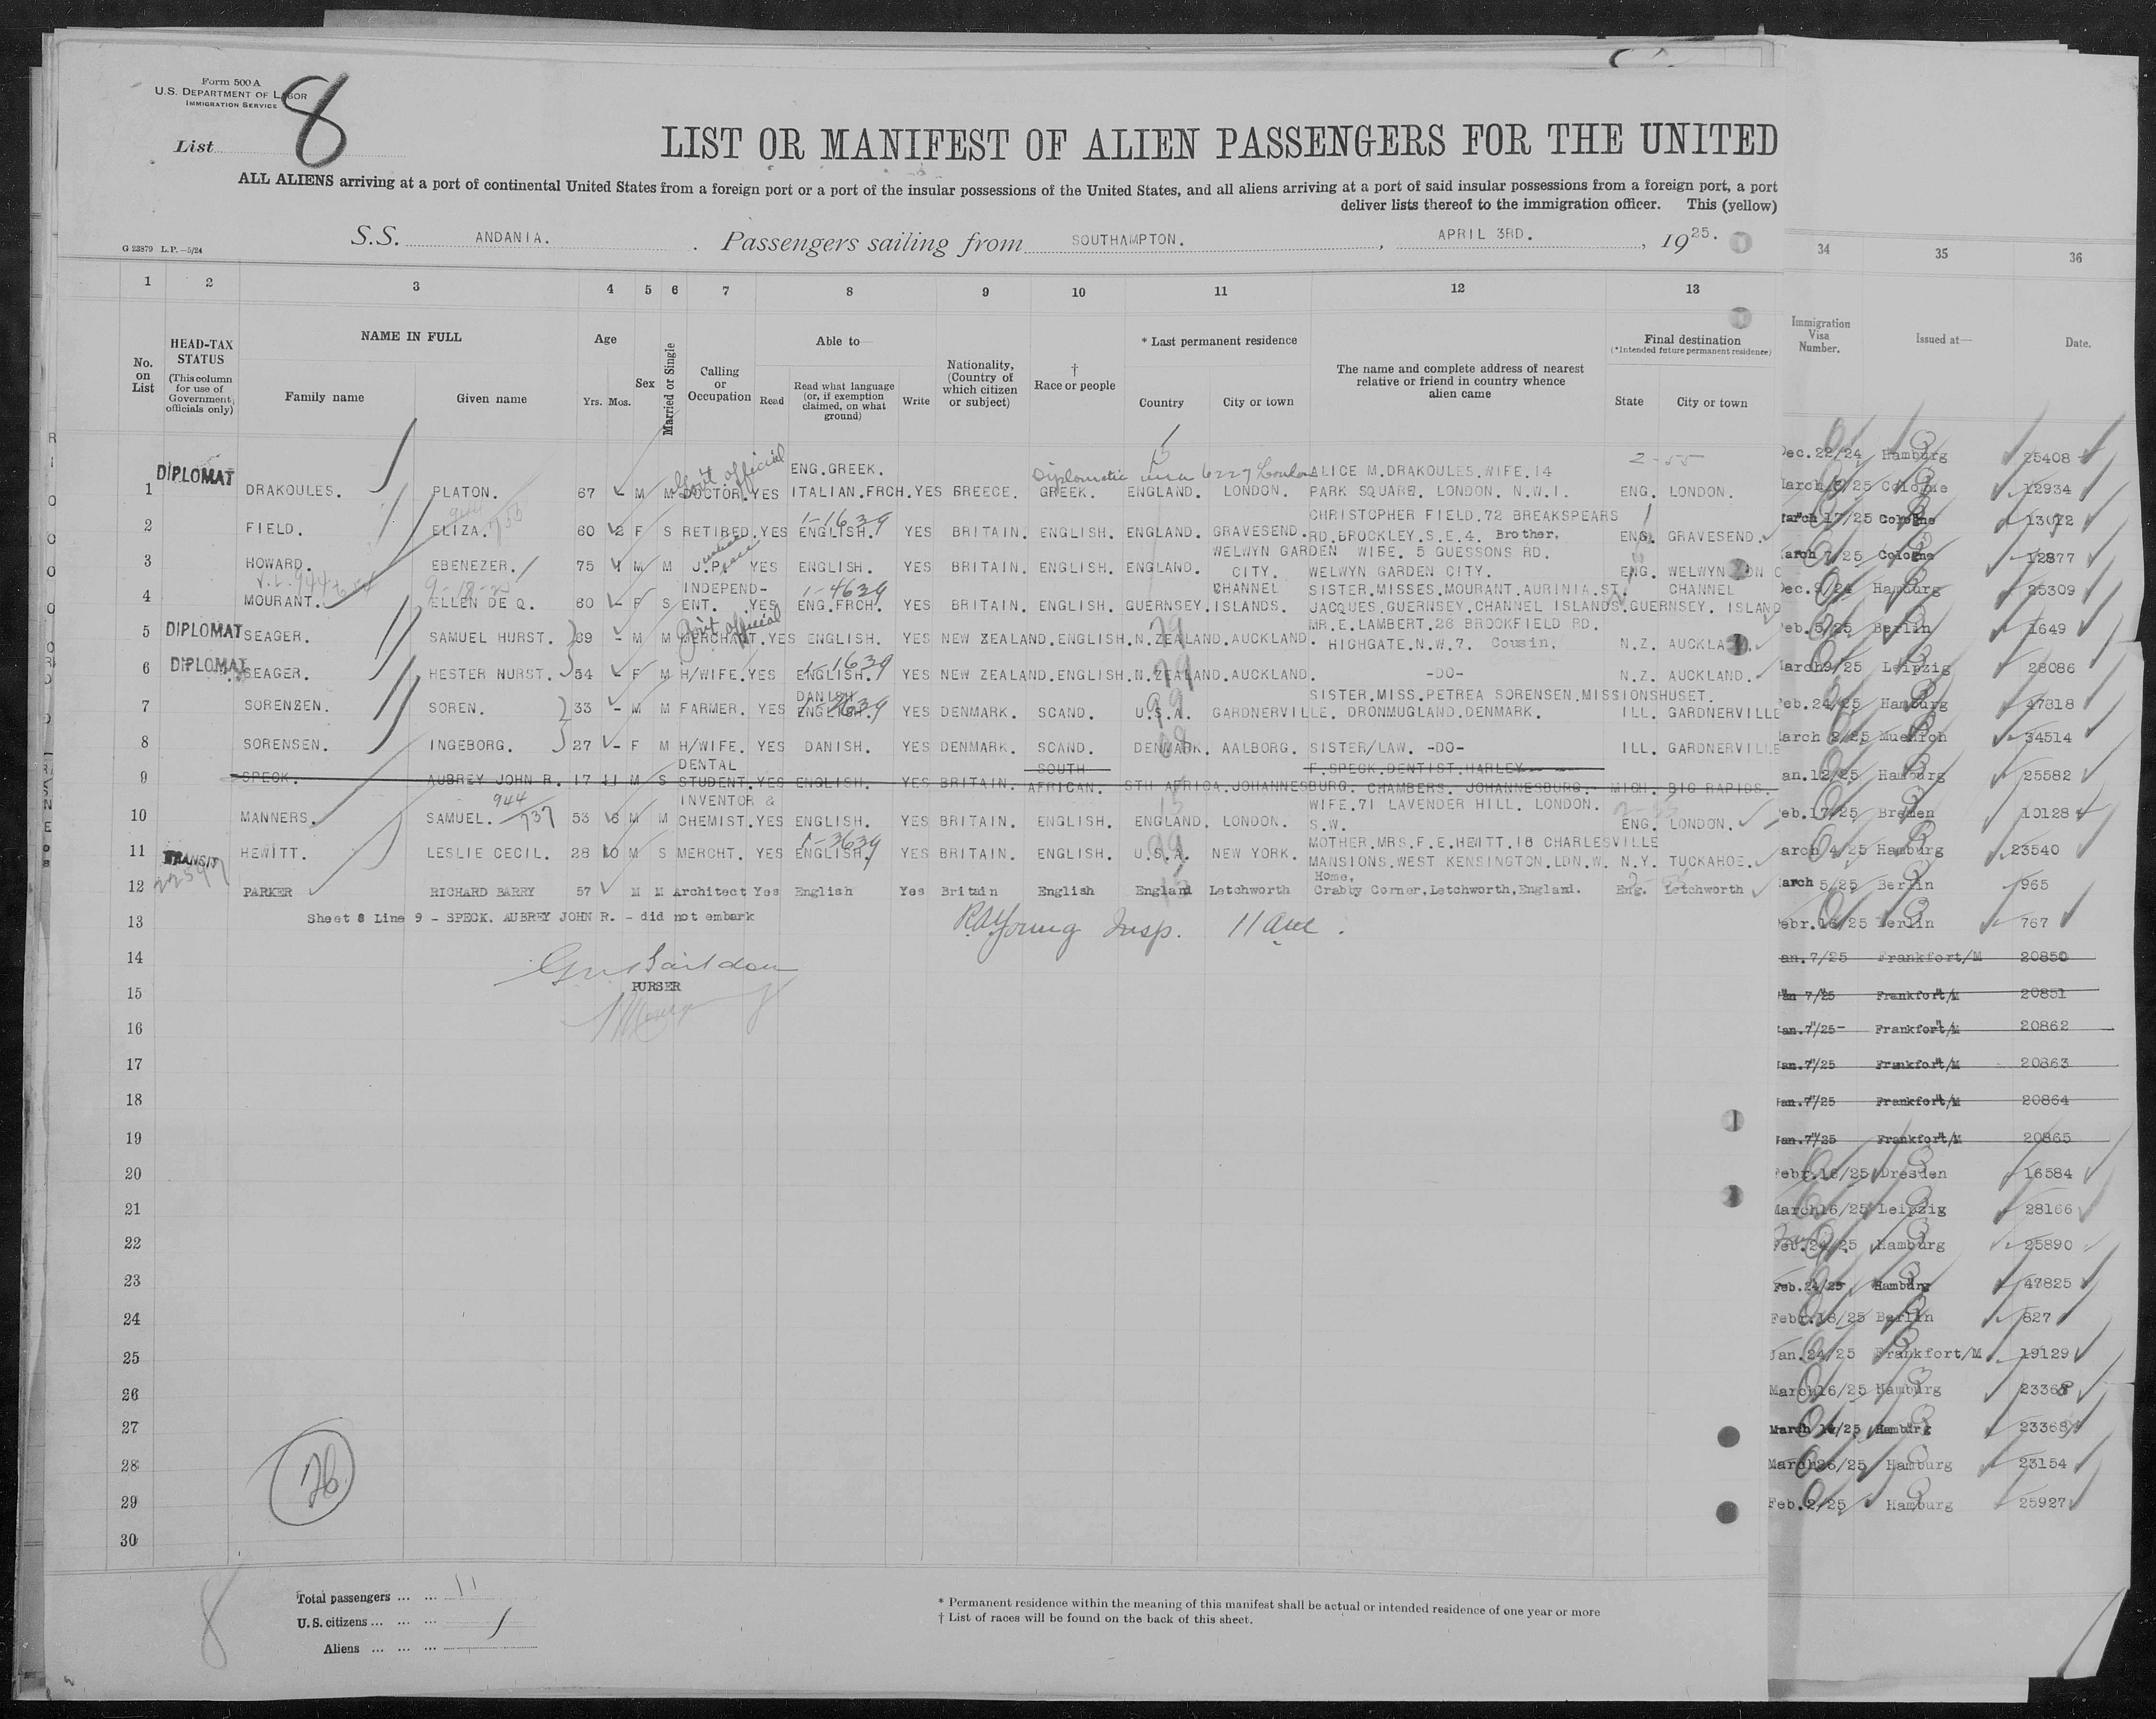 Form 500 A
U.S. DEPARTMENT OF LABOR
IMMIGRATION SERVICE
List 8
LIST OR MANIFEST OF ALIEN PASSENGERS FOR THE UNITED
ALL ALIENS arriving at a port of continental United States from a foreign port or a port of the insular possessions of the United States, and all aliens arriving at a port of said insular possessions from a foreign port, a port
deliver lists thereof to the immigration officer. This (yellow)
G 23879 L.P.—5/24
S.S. ANDANIA. Passengers sailing from SOUTHAMPTON. , APRIL 3RD. , 1925.
1 2 3 4 5 6 7 8 9 10 11 12 13 34 35 36
No. on List
HEAD-TAX STATUS (This column for use of Government officials only)
NAME IN FULL
Family name Given name
Age Yrs. Mos.
Sex
Married or Single
Calling or Occupation
Able to—
Read Read what language (or, if exemption claimed, on what ground) Write
Nationality, (Country of which citizen or subject)
† Race or people
* Last permanent residence
Country City or town
The name and complete address of nearest relative or friend in country whence alien came
Final destination
(*Intended future permanent residence)
State City or town
Immigration Visa Number.
Issued at—
Date.
DIPLOMAT Gov't official ENG.GREEK. Diplomatic visa 6227 London ALICE M.DRAKOULES.WIFE.14 2-55
1 DRAKOULES. PLATON. 67 - M M DOCTOR.YES ITALIAN.FRCH.YES GREECE. GREEK. ENGLAND. LONDON. PARK SQUARE. LONDON. N.W.1. ENG. LONDON.
1-1639 CHRISTOPHER FIELD.72 BREAKSPEARS
2 FIELD. ELIZA. 60 2 F S RETIRED.YES ENGLISH. YES BRITAIN. ENGLISH. ENGLAND. GRAVESEND. RD.BROCKLEY.S.E.4. Brother. ENG. GRAVESEND.
WELWYN GARDEN WIFE. 5 GUESSONS RD.
3 HOWARD. EBENEZER. 75 M M J.P. YES ENGLISH. YES BRITAIN. ENGLISH. ENGLAND. CITY. WELWYN GARDEN CITY. ENG. WELWYN
9-18-25 INDEPEND- 1-4639 CHANNEL SISTER.MISSES.MOURANT.AURINIA.ST. CHANNEL
4 MOURANT. ELLEN DE Q. 60 - F S ENT. YES ENG.FRCH. YES BRITAIN. ENGLISH. GUERNSEY. ISLANDS. JACQUES.GUERNSEY.CHANNEL ISLANDS. GUERNSEY. ISLAND
Gov't official MR.E.LAMBERT.26 BROOKFIELD RD.
5 DIPLOMAT SEAGER. SAMUEL HURST. 69 - M M MERCHANT.YES ENGLISH. YES NEW ZEALAND.ENGLISH.N.ZEALAND.AUCKLAND. HIGHGATE.N.W.7. Cousin. N.Z. AUCKLAND.
1-1639
6 DIPLOMAT SEAGER. HESTER NURST. 54 - F M H/WIFE.YES ENGLISH. YES NEW ZEALAND.ENGLISH.N.ZEALAND.AUCKLAND. -DO- N.Z. AUCKLAND.
DANISH SISTER.MISS.PETREA SORENSEN.MISSIONSHUSET.
7 SORENSEN. SOREN. 33 - M M FARMER. YES ENGLISH. YES DENMARK. SCAND. U.S.A. GARDNERVILLE. DRONMUGLAND.DENMARK. ILL. GARDNERVILLE
8 SORENSEN. INGEBORG. 27 - F M H/WIFE. YES DANISH. YES DENMARK. SCAND. DENMARK. AALBORG. SISTER/LAW. -DO- ILL. GARDNERVILLE
DENTAL SOUTH F.SPECK.DENTIST.HARLEY
9 SPECK. AUBREY JOHN R. 17 11 M S STUDENT.YES ENGLISH. YES BRITAIN. AFRICAN. STH AFRICA.JOHANNESBURG. CHAMBERS. JOHANNESBURG. MICH. BIG RAPIDS.
944/737 INVENTOR & WIFE.71 LAVENDER HILL. LONDON.
10 MANNERS. SAMUEL. 53 6 M M CHEMIST.YES ENGLISH. YES BRITAIN. ENGLISH. ENGLAND. LONDON. S.W. ENG. LONDON.
1-3639 MOTHER.MRS.F.E.HEWITT.18 CHARLESVILLE
11 TRANSIT HEWITT. LESLIE CECIL. 28 10 M S MERCHT. YES ENGLISH. YES BRITAIN. ENGLISH. U.S.A. NEW YORK. MANSIONS.WEST KENSINGTON.LDN.W. N.Y. TUCKAHOE.
Home,
12 PARKER RICHARD BARRY 57 M M Architect Yes English Yes Britain English England Letchworth Crabby Corner,Letchworth,England. Eng. Letchworth
13 Sheet 8 Line 9 - SPECK. AUBREY JOHN R. - did not embark
Insp.
14
PURSER
15
16
17
18
19
20
21
22
23
24
25
26
27
28
29
30
26
8
Dec.22/24 Hamburg 25408
Cologne 12934
March 17/25 Cologne 13072
Cologne 12877
Dec.9/24 Hamburg 25309
Feb.5/25 Berlin 1649
March9/25 Leipzig 28086
Feb.24/25 Hamburg 47818
Muenich 34514
Jan.12/25 Hamburg 25582
Feb.17/25 Bremen 10128
March 4/25 Hamburg 23540
March 5/25 Berlin 965
Febr.16/25 Berlin 767
Jan.7/25 Frankfort/M 20850
Jan 7/25 Frankfort/M 20851
Jan.7/25 Frankfort/M 20862
Jan.7/25 Frankfort/M 20863
Jan.7/25 Frankfort/M 20864
Jan.7/25 Frankfort/M 20865
Febr.16/25 Dresden 16584
March16/25 Leipzig 28166
Feb.24/25 Hamburg 25890
Feb.24/25 Hamburg 47825
Febr.18/25 Berlin 827
Jan.24/25 Frankfort/M 19129
March16/25 Hamburg 23368
Hamburg 23369
March26/25 Hamburg 23154
Feb.2/25 Hamburg 25927
Total passengers ... ... 11
U.S. citizens ... ... ...
Aliens ... ... ...
* Permanent residence within the meaning of this manifest shall be actual or intended residence of one year or more
† List of races will be found on the back of this sheet.